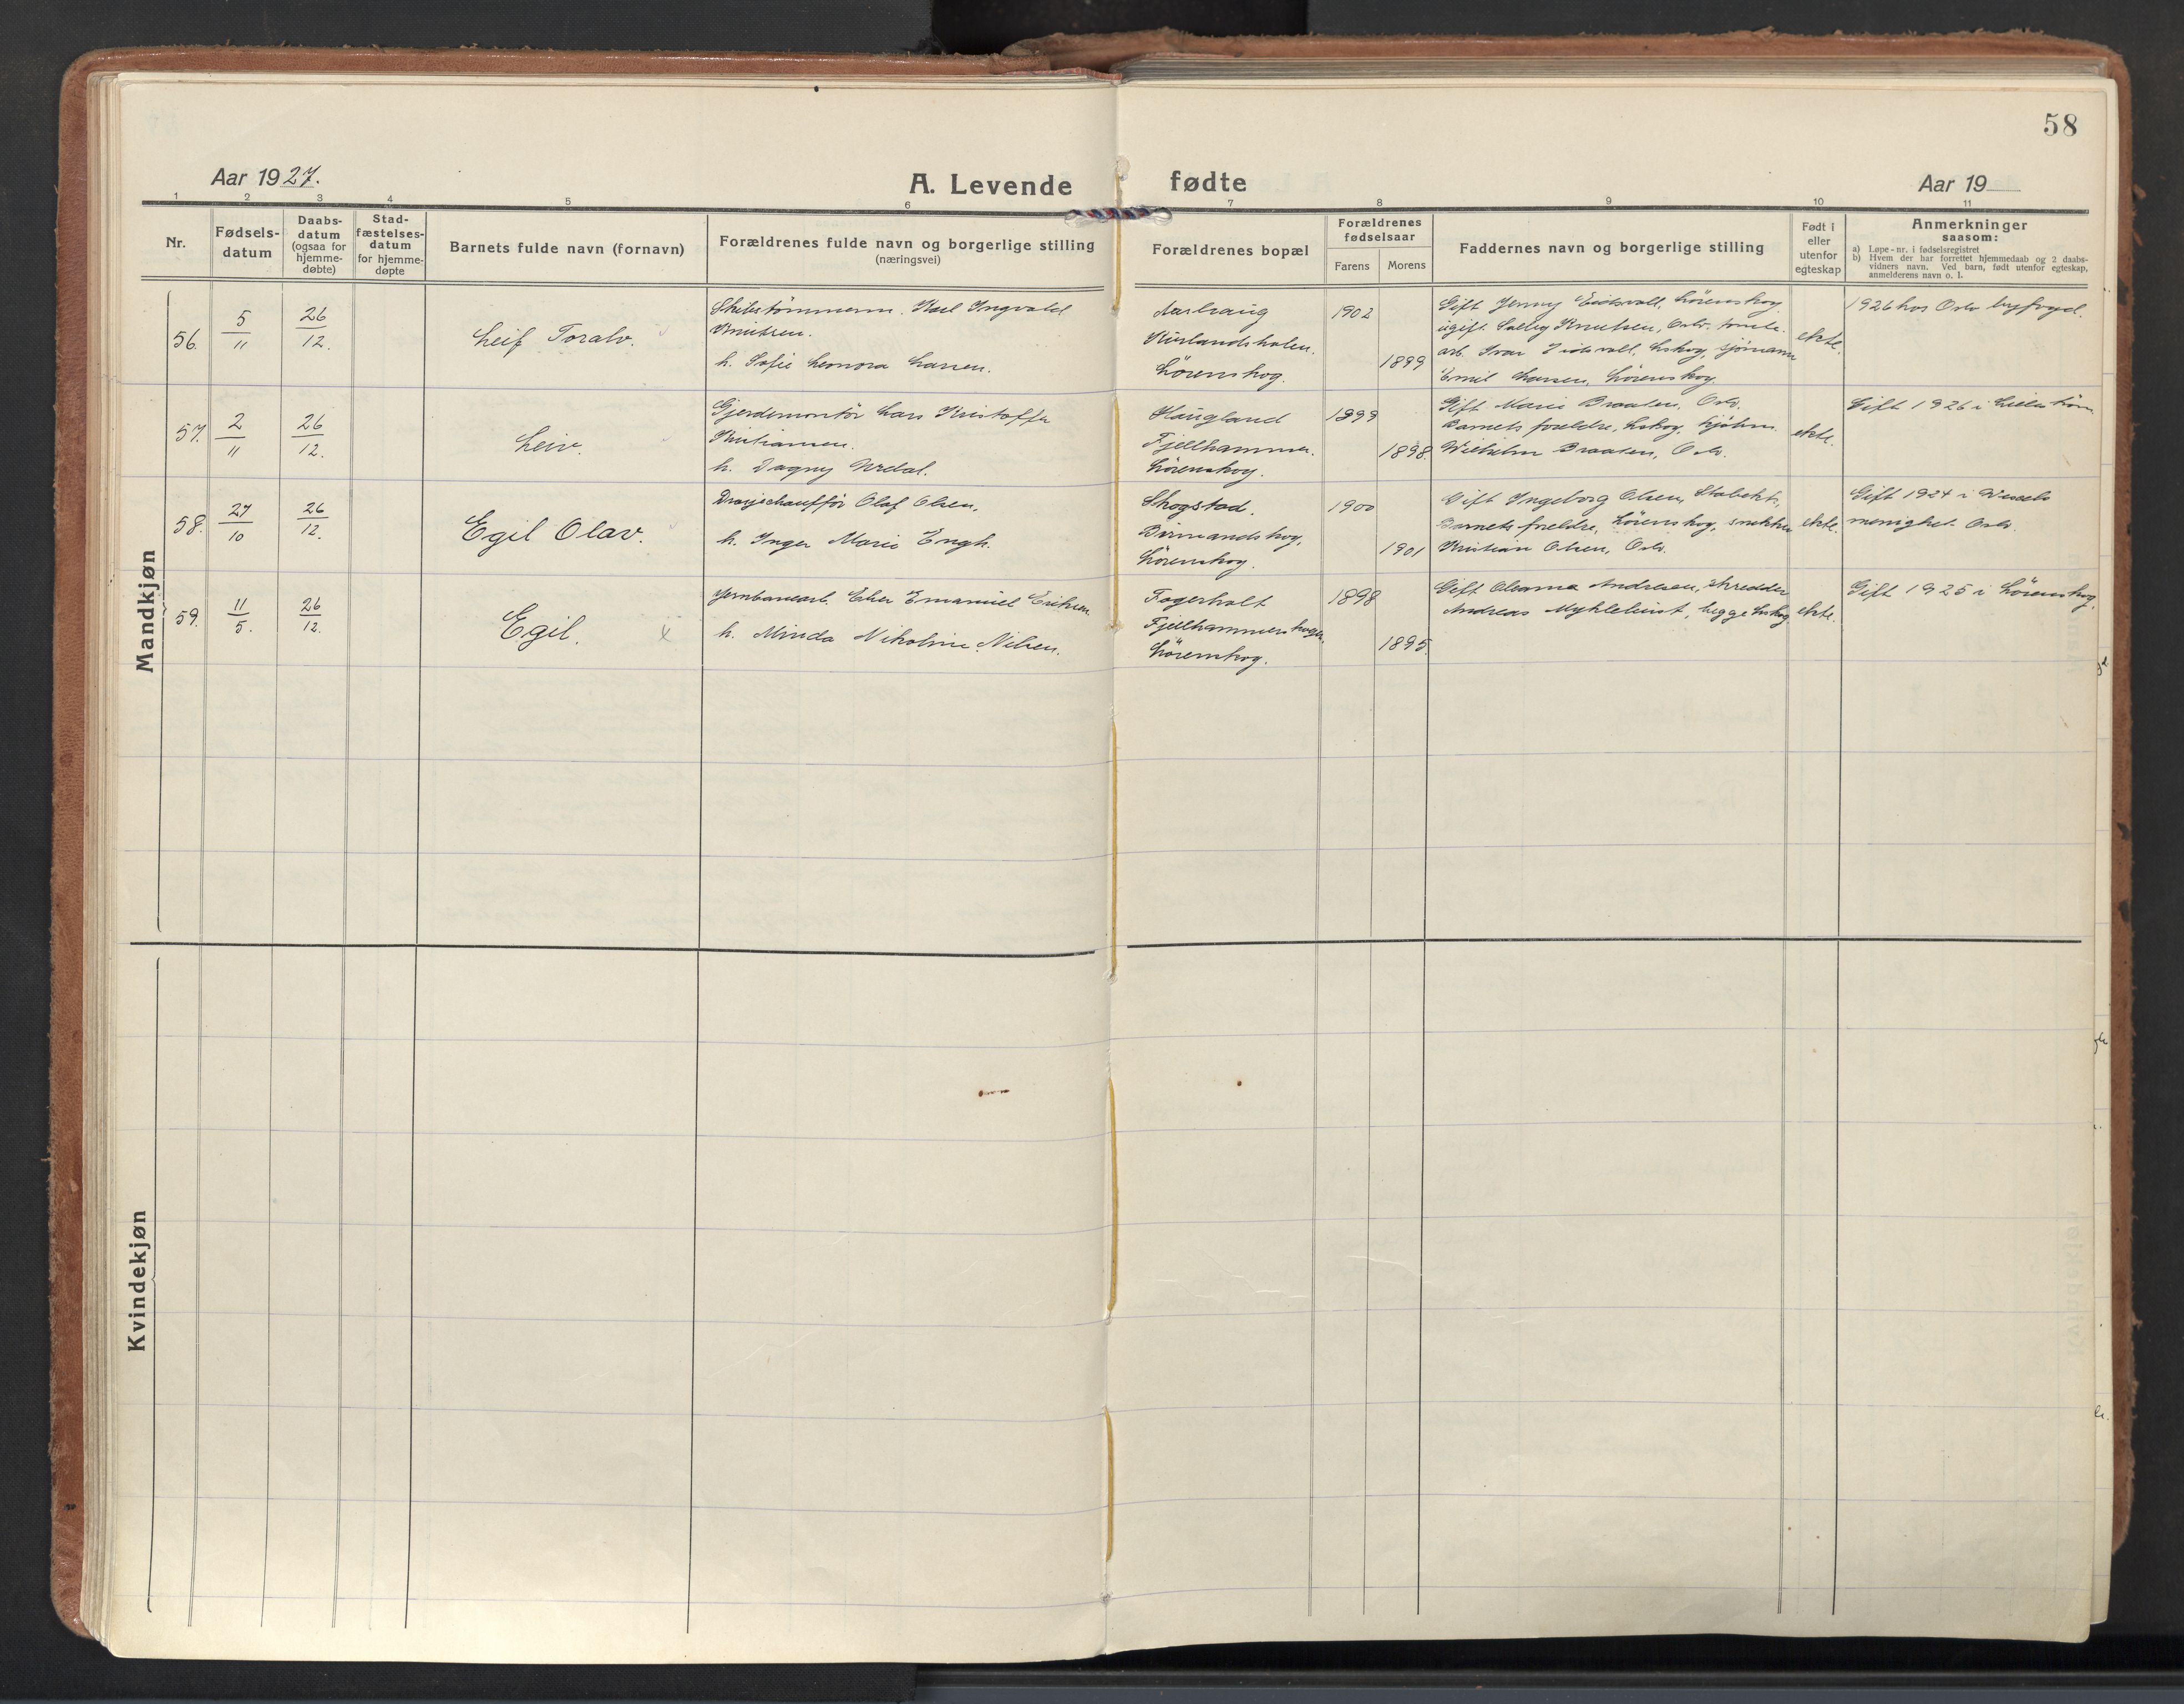 58
Aar 1927.
A. Levende fødte
Aar 19
1 2 3 4 5 6 7 8 9 10 11
Nr.
Fødsels-
datum
Daabs-
datum
(ogsaa for
hjemme-
døbte)
Stad-
fæstelses-
datum
for hjemme-
døpte
Barnets fulde navn (fornavn)
Forældrenes fulde navn og borgerlige stilling
(næringsvei)
Forældrenes bopæl
Forældrenes
fødselsaar
Farens Morens
Faddernes navn og borgerlige stilling
Født i
eller
utenfor
egteskap
Anmerkninger
saasom:
a) Løpe-nr. i fødselsregistret
b) Hvem der har forrettet hjemmedaab og 2 daabs-
vidners navn. Ved barn, født utenfor egteskap,
anmelderens navn o. l.
Mandkjøn
56.
5/11
26/12.
Leif Toralv.
Karl Ingvald
Knutsen.
h. Sofie Leonora Larsen.
Kurlandsholen.
Lørenskog.
1902
1899
Gift Jenny Eidsvoll, Lørenskog
ugift Solby Knutsen, Oslo. tomte.
arb. Ivar Eidsvoll, Lskog, sjömann
Emil Larsen, Lørenskog.
ekte.
1926 hos Oslo byfogd.
57.
2/11
26/12.
Leiv.
Gjerdemontör Lars Kristoffer
Kristiansen.
h. Dagny Urdal.
Haugland
Fjellhammer.
Lørenskog.
1899
1898.
Gift Marie Braaten, Oslo.
Barnets foreldre, Lskog.
Wilhelm Braaten, Oslo.
ekte.
Gift 1926 i Lillestrøm
58.
27/10
26/12.
Egil Olav.
Drosjechaufför Olaf Olsen,
h. Inger Marie Engh.
Skogstad.
Lörenskog.
1900
1901
Gift Ingeborg Olsen, Stabekk,
Barnets foreldre, Lörenskog, snekker
Kristian Olsen, Oslo.
ekte.
Gift 1924 i Wessels
menighet. Oslo.
59.
11/5.
26/12.
Egil.
x
Jernbanearb. Emanuel Eriksen
h. Minda Nikoline Nilsen.
Fagerholt
Fjellhammerskogen.
Lörenskog.
1898
1895.
Gift Oleanna Andresen, skredder
Andreas Myklebust, begge Lskog.
ekte.
Gift 1925 i Lörenskog.
Kvindekjøn